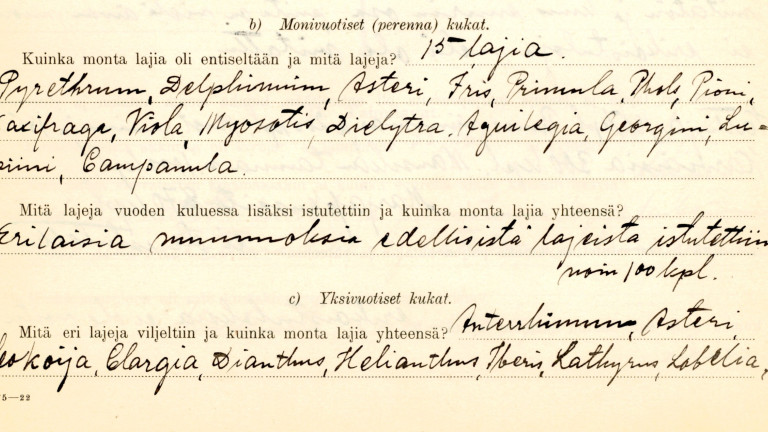 b) Monivuotiset (perenna) kukat.
Kuinka monta lajia oli entiseltään ja mitä lajeja? 15 lajia.
Pyrethrum, Delphinium, Asteri, Iris, Primula, Phols, Pioni,
axifraga, Viola, Myosotis, Dielytra, Aquilegia, Georgini, Lu=
piini, Campanula.
Mitä lajeja vuoden kuluessa lisäksi istutettiin ja kuinka monta lajia yhteensä?
Erilaisia muunnoksia edellisistä lajeista istutettiin
noin 100 kpl.
c) Yksivuotiset kukat.
Mitä eri lajeja viljeltiin ja kuinka monta lajia yhteensä? Anterrhinum, Asteri,
eokoija, Clargia, Dianthus, Helianthus, Iberis, Lathyrus, Lobelia,
5—22